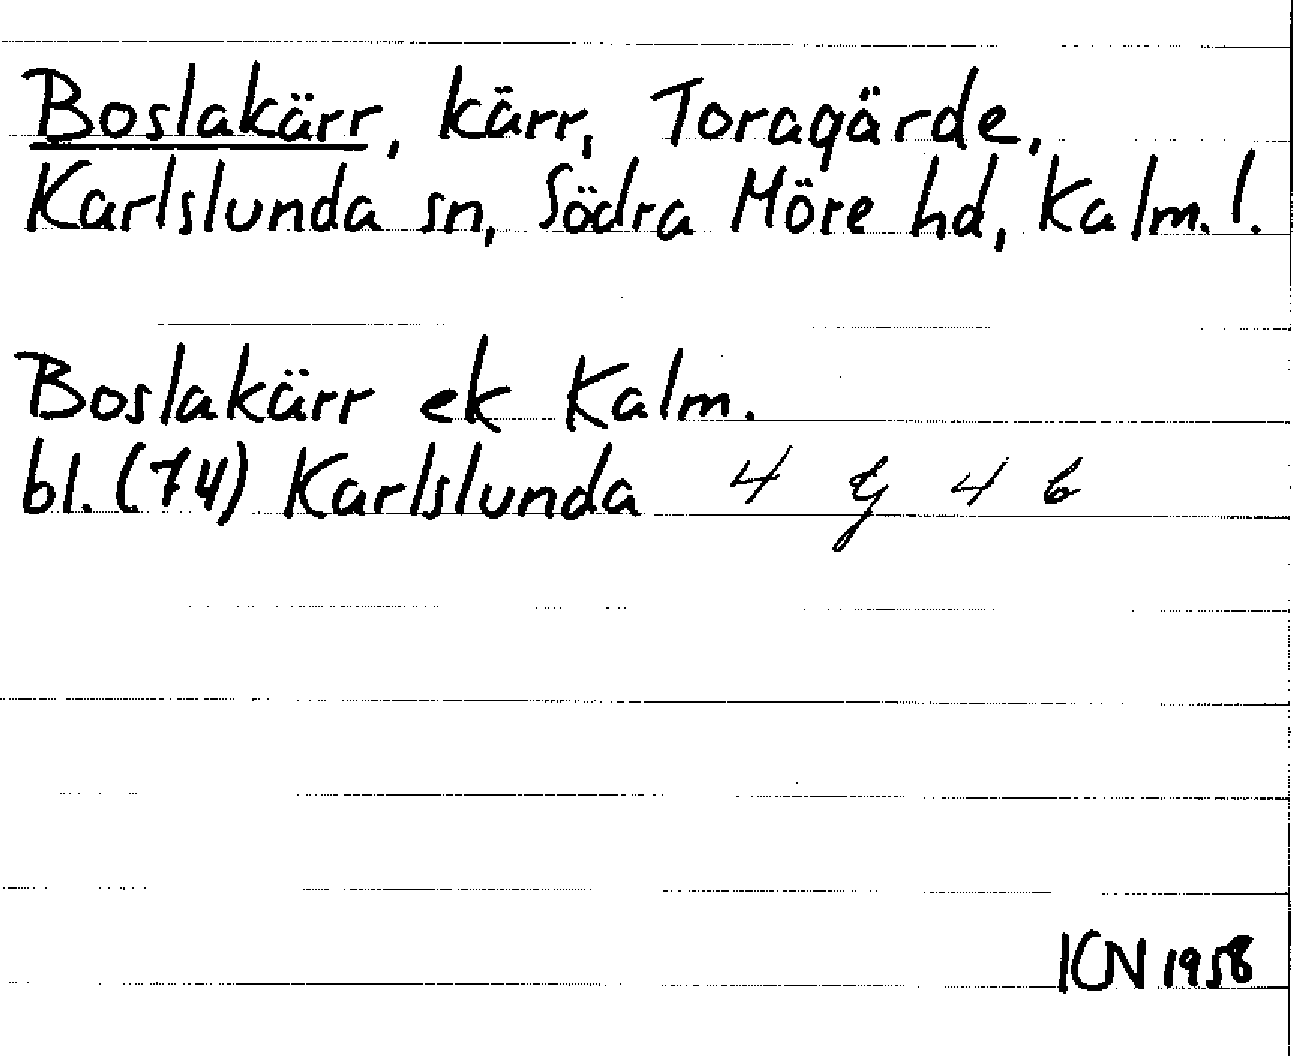 Boslakärr, kärr, Toragärde,
Karlslunda sn, Södra Möre hd, Kalm. !.
Boslakärr ek Kalm.
bl. (74) Karlslunda 4 G 4 b
ICN 1958